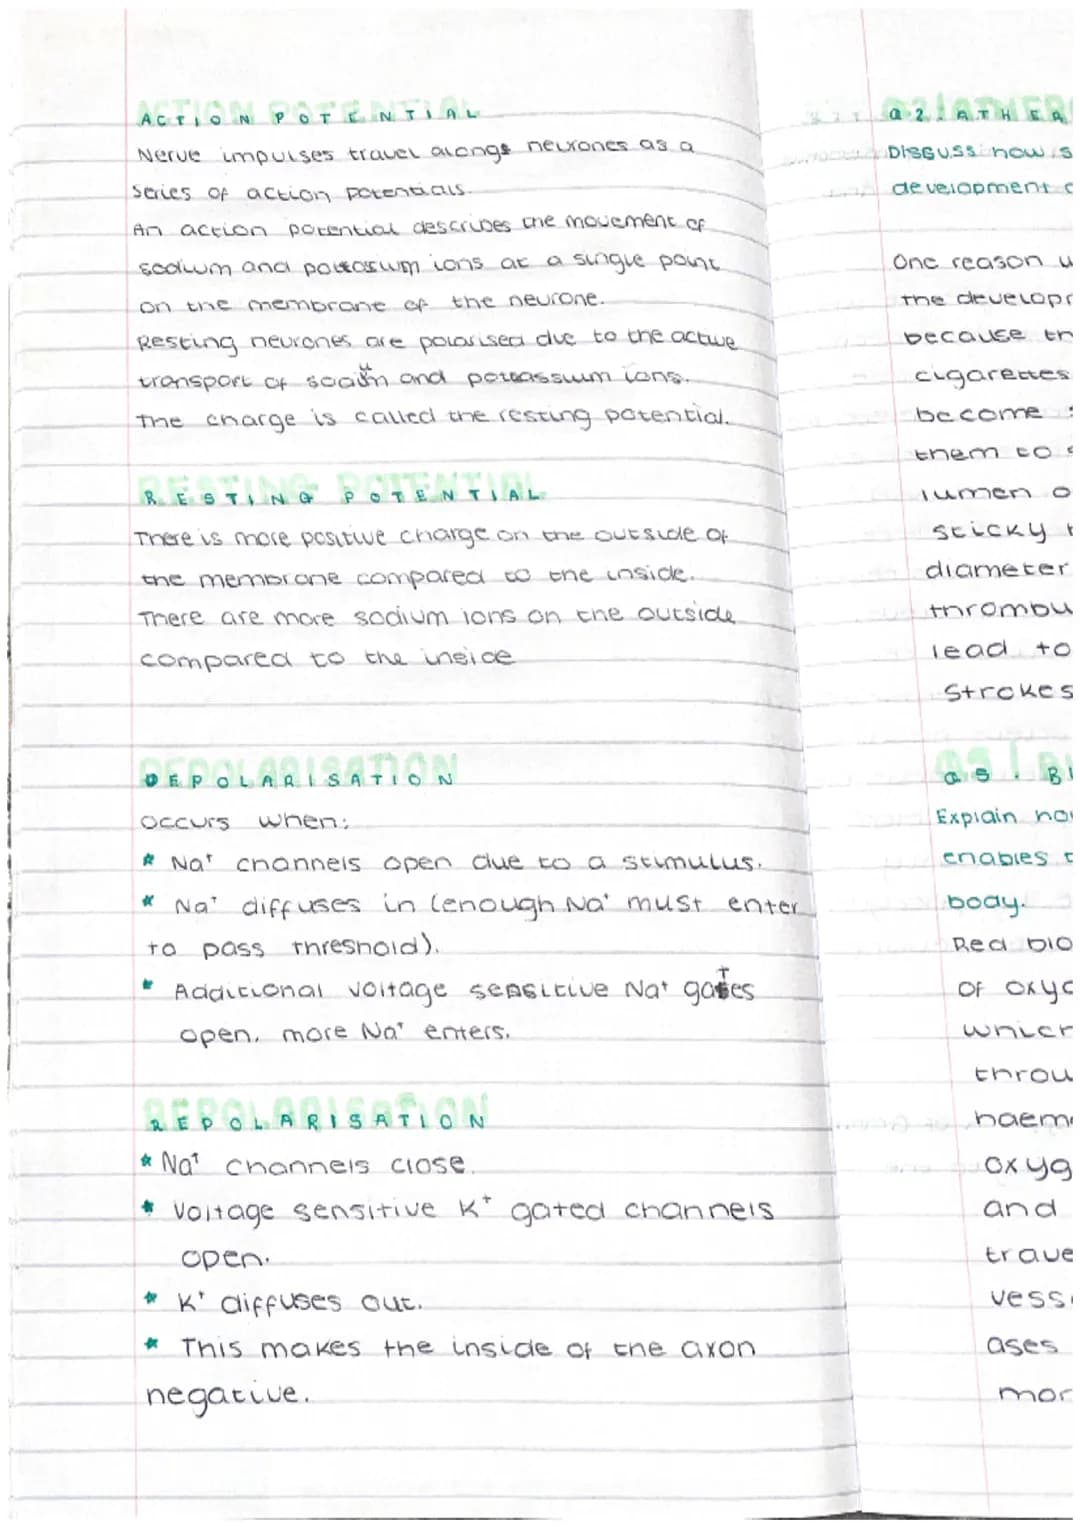 ACTION POTENTIAL
Nerve impulses travel along neurones as a
series of action potentials.
An action potential describes the movement of
sodium and potassium ions at a single point
on the membrane of the neurone.
Resting neurones are polarised due to the active
transport of sodium and potassium ions.
The charge is called the resting potential.
RESTING POTENTIAL
There is more positive charge on the outside of
the membrane compared to the inside.
There are more sodium ions on the outside
compared to the inside
DEPOLARISATION
occurs when:
* Na⁺ channels open due to a stimulus.
* Na⁺ diffuses in (enough Na⁺ must enter
to pass threshold).
* Additional voltage sensitive Na⁺ gates
open, more Na⁺ enters.
REPOLARISATION
* Na⁺ channels close.
* Voltage sensitive K⁺ gated channels
open.
* K⁺ diffuses out.
* This makes the inside of the axon
negative.
Q2: ATHER
Discuss how s
development
One reason
the develop
because th
cigarettes
become
them to
lumen o
sticky
diameter
thrombu
lead to
strokes
Q5. B
Explain ho
enables
body.
Red blo
of oxy
which
throu
haem
oxyg
and
trave
vess
ases
mor